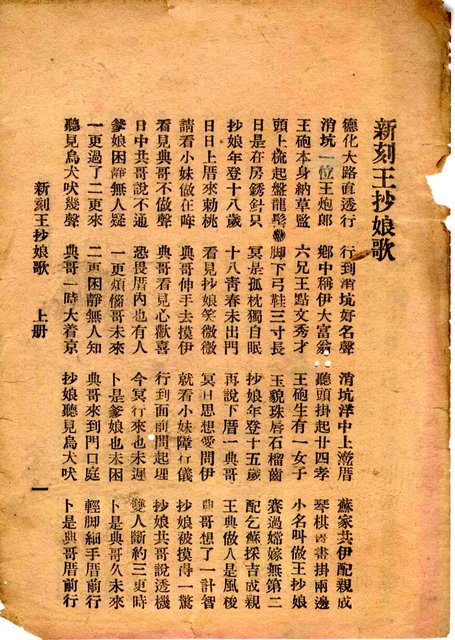 新刻王抄娘歌
德化大路直透行 行到湳坑好名聲 湳坑洋中上厝 蘇家共伊配親成
湳坑一位王炮郎 鄉中稱伊大富翁 聽頭掛起廿四孝 琴棋書畫掛兩邊
王砲本身納草監 六兄王點文秀才 王砲生有一女子 小名叫做王抄娘
頭上梳起盤龍髻 脚下弓鞋三寸長 玉貌珠唇石榴齒 賽過嫦嫁無第二
日是在房銹針只 冥是孤枕獨自眠 抄娘年登十五歲 配乞蘇採吉成親
抄娘年登十八歲 十八青春未出門 再說下厝一典哥 王典做人是風梭
日日上厝來勅桃 看見抄娘笑微微 冥日思想愛問伊 典哥想了一計智
請看小妹做在哖 典哥伸手去摸伊 就看小妹障行儀 抄娘被摸得一驚
看見典哥不做聲 典哥看見心歡喜 行到面前問起理 抄娘共哥說透機
日中共哥說不通 恐畏厝內也有人 今冥行來也未遲 雙人斷約三更時
爹娘困靜無人疑 一更煩惱哥未來 卜是爹娘也未困 卜是典哥久未來
一更過了二更來 二更困靜無人知 典哥來到門口庭 輕脚細手厝前行
聽見鳥犬吠幾聲 典哥一時大着京 抄娘聽見鳥犬吠 卜是典哥厝前行
新刻王抄娘歌 上册 一